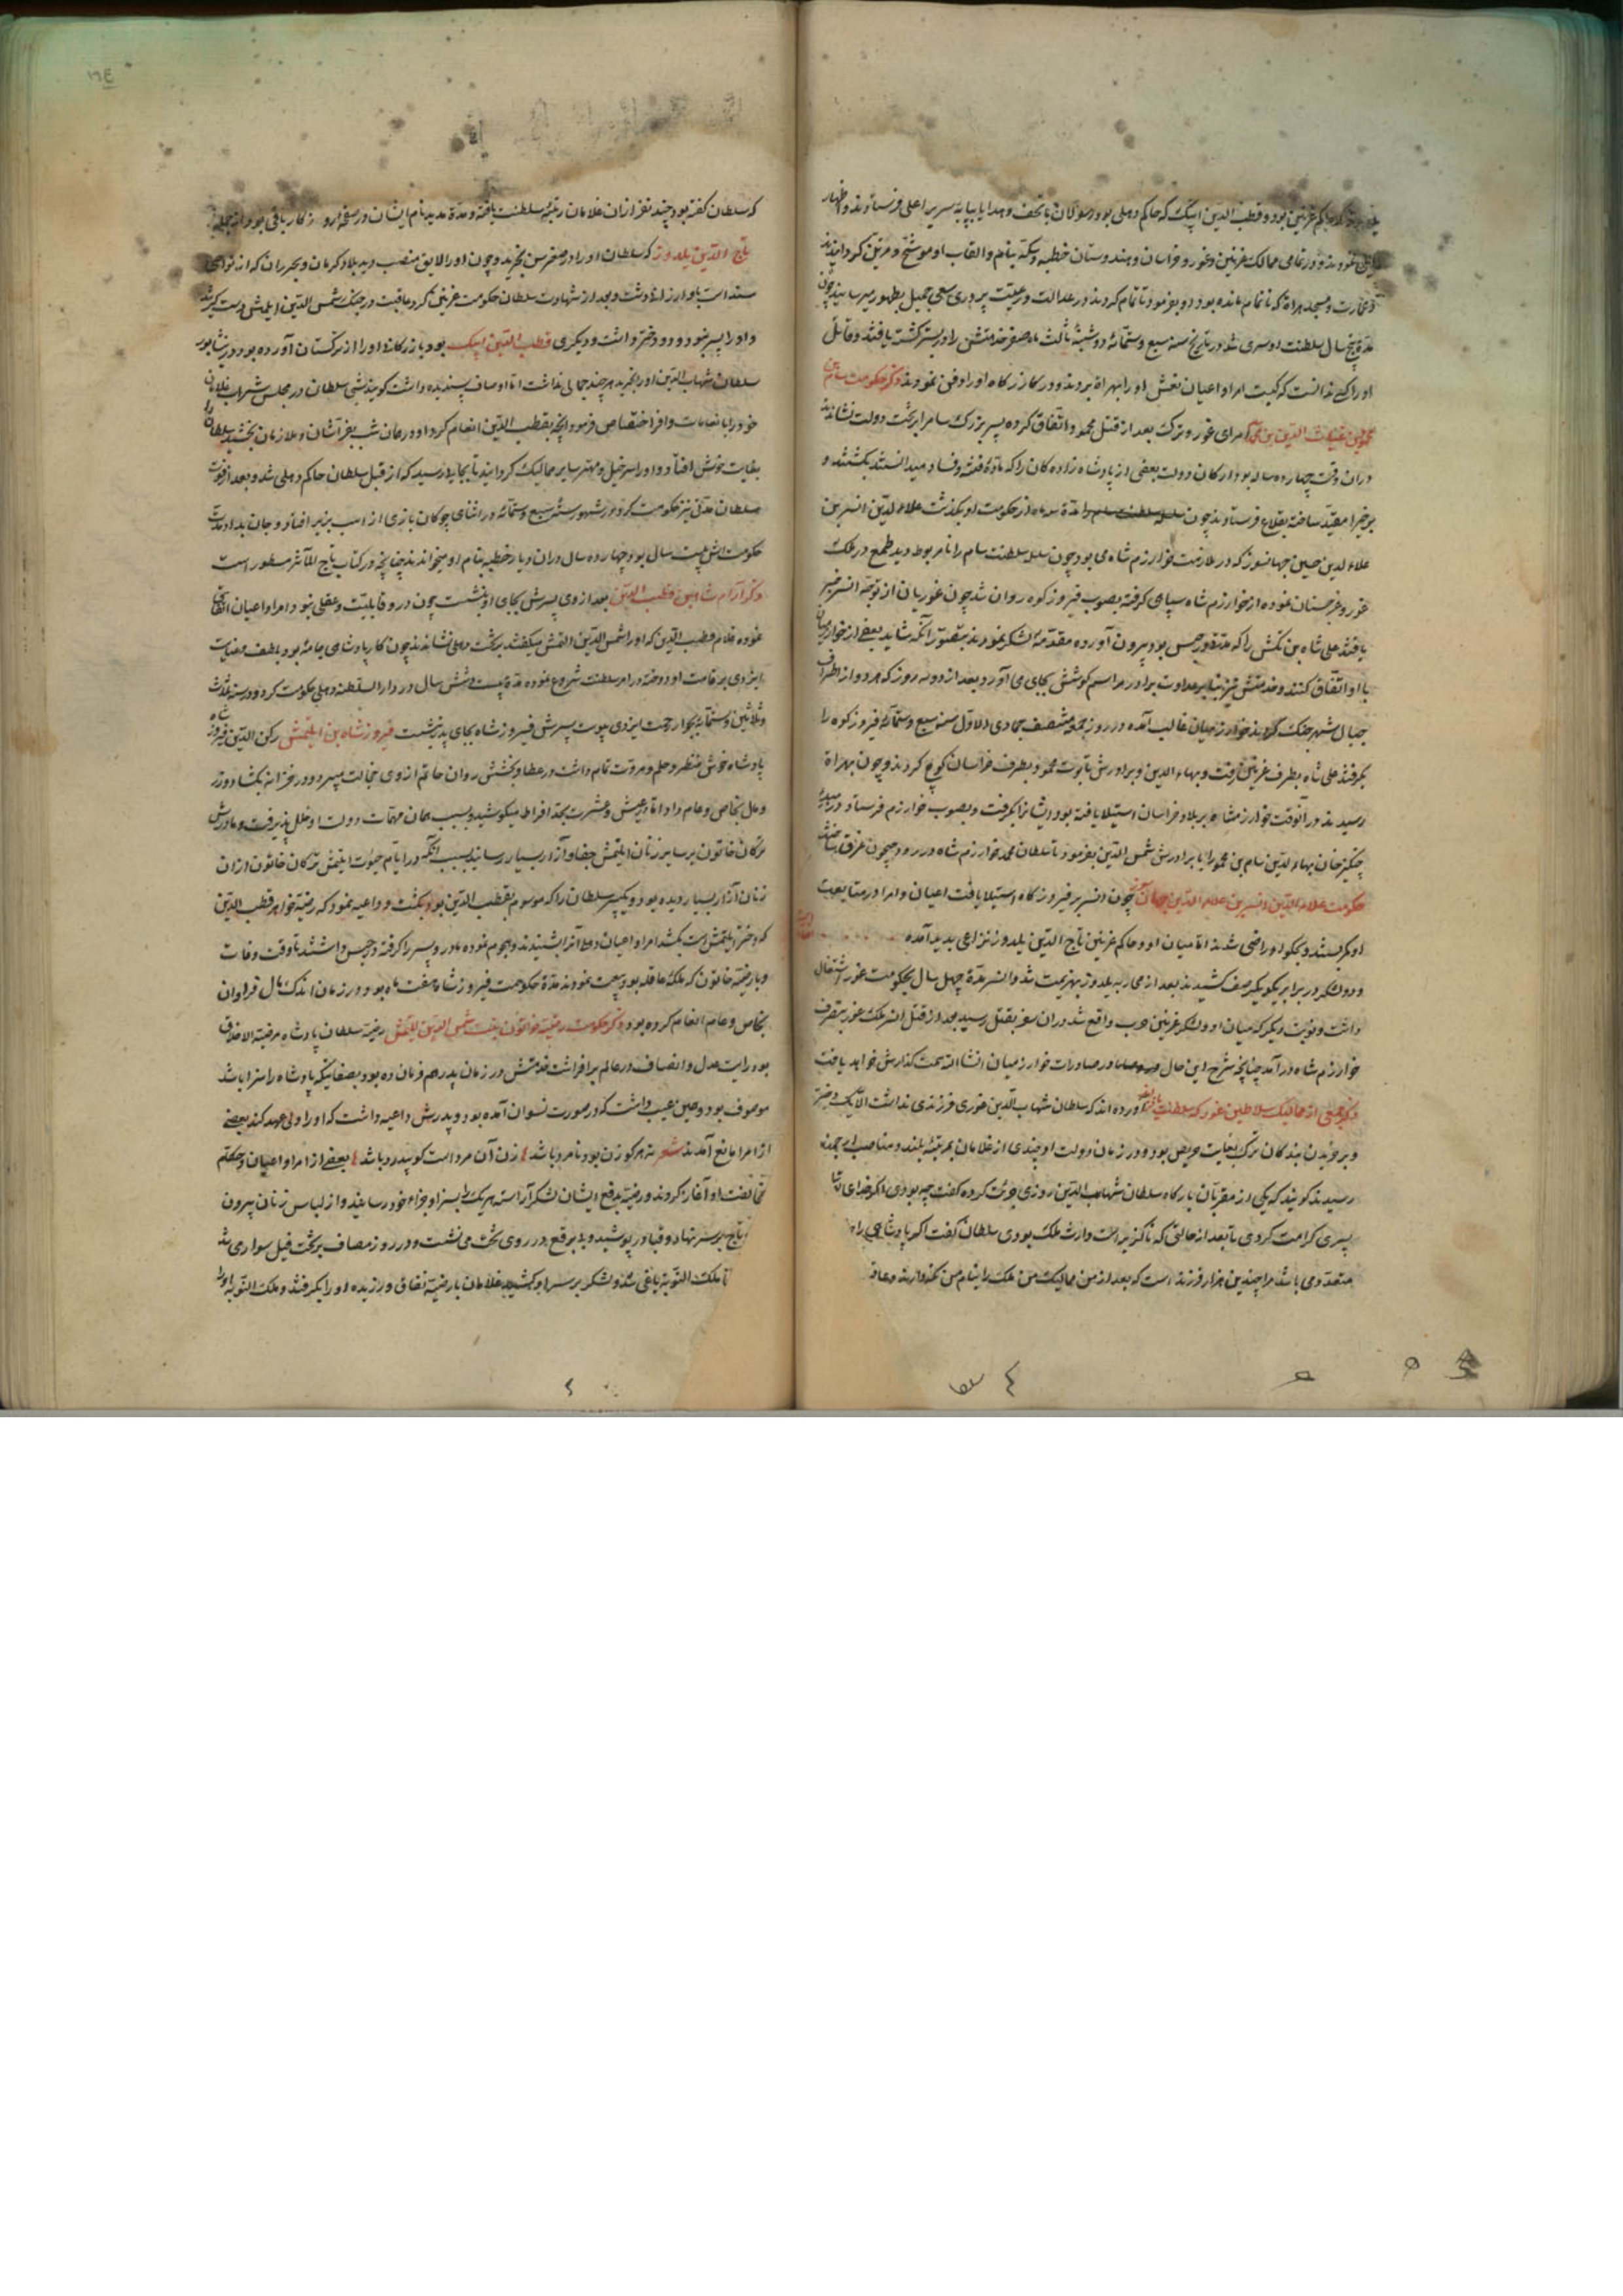 یلدوز که حاکم غزنین بود و قطب الدین ایبک که حاکم دهلی بود رسولان با تحف و هدایا بپایه سریر اعلی فرستادند و اظهار
نمودند و در تمامی ممالک غزنین و غور و خراسان و هندوستان خطبه و سکه بنام و القاب او موشح و مزین گردانیدند
و عمارت مسجد هراة که ناتمام مانده بود او بفرمود تا تمام کردند در عدالت و رعیت پروری سعی جمیل بظهور میرسانید چون
مدة پنج سال سلطنت او سپری شد در تاریخ سنه سبع و ستمائه دوشنبه ثالث ماه صفر خدمتش را در بستر کشته یافتند و قاتل
او را کسی ندانست که کیست امرا و اعیان نعش او را بهراة بردند و در کازرگاه او را دفن نمودند ذکر حکومت سام بن
محمود بن غیاث الدین بن محمد امرای غور و ترک بعد از قتل محمود اتفاق کرده پسر بزرگ سام را بر تخت دولت نشاندند
دران وقت چهارده ساله بود ارکان دولت بعضی از پادشاه زاده کان را که مادة فتنه و فساد میدانستند بکشتند و
برخی را مقید ساخته بقلاع فرستادند چون مدة سه ماه از حکومت او بگذشت علاء الدین اتسر بن
علاء الدین حسین جهانسوز که در ملازمت خوارزم شاه می بود چون سلسله سلطنت سام را نامربوط دید طمع در ملک
غور و غرجستان نموده از خوارزم شاه سپاهی گرفته بصوب فیروزکوه روان شد چون غوریان از توجه اتسر خبر
یافتند علی شاه بن تکش را که در حبس بود بیرون آورده مقدمة لشکر نمودند بتصور آنکه شاید بعضی از خوارزمیان
با او اتفاق کنند و خدمتش نیز بنابر عداوت برادر مراسم کوشش بجای می آورد و بعد از دو سه روز که هر دو از اطراف
جبال شهر جنگ کردند خوارزمیان غالب آمده در روز جمعه منتصف جمادی الاول سنه سبع و ستمائه فیروزکوه را
بگرفتند علی شاه بطرف غزنین رفت و بهاء الدین و برادرش تابوت محمود بطرف خراسان کوچ کردند و چون بهراة
رسیدند در آنوقت خوارزمشاه بر بلاد خراسان استیلا یافته بود ایشانرا بگرفت و بصوب خوارزم فرستاد و در
چنگیز خان بهاء الدین سام بن محمود را با برادرش شمس الدین بفرمود تا سلطان محمد خوارزم شاه در رود جیحون غرق ساختند
حکومت علاء الدین اتسر بن علاء الدین جهان سوز چون اتسر بر فیروزکاه استیلا یافت اعیان و امرا در متابعت
او کمر بستند و بحکم او راضی شدند اما میان او و حاکم غزنین تاج الدین یلدوز نزاعی پدید آمده
و دو لشکر در برابر یکدیگر صف کشیدند بعد از محاربه یلدوز بهزیمت شد و اتسر مدة چهل سال بحکومت غور اشتغال
داشت و نوبت دیگر که میان او و لشکر غزنین حرب واقع شد دران سفر بقتل رسید بعد از قتل اتسر ملک غور بتصرف
خوارزم شاه در آمد چنانچه شرح این حال در صادرات خوارزمیان انشاالله سمت گذارش خواهد یافت
ذکر بعضی از ممالیک سلاطین غور که سلطنت یافتند آورده اند که سلطان شهاب الدین غوری فرزندی نداشت الا یک دختر
و بر خریدن بندکان ترک بغایت حریص بود و در زمان دولت او چندی از غلامان بمرتبه بلند و مناصب ارجمند
رسیدند گویند که یکی از مقربان بارکاه سلطان شهاب الدین روزی جرئت کرده گفت چه بودی اگر خدای
پسری کرامت کردی تا بعد از حالتی که ناگزیر است وارث ملک بودی سلطان گفت اگر پادشاهی را
متعدد می باشد مرا چندین هزار فرزند است که بعد از من ممالیک من ملک را بنام من نگهدارند
که سلطان گفته بود چند نفر ازان غلامان رتبه سلطنت یافته و مدة مدید نام ایشان در صفحه روزکار باقی بود و از جمله
تاج الدین یلدوز که سلطان او را در صغر سن بخرید و چون او را لایق منصب دید بلاد کرمان و که از نواحی
سند است باو ارزانی داشت و بعد از شهادت سلطان حکومت غزنین کرد عاقبت در جنک شمس الدین ایلتمش
و او را پسر نبود و دو دختر داشت و دیگری قطب الدین ایبک بود بازرگانی او را از ترکستان آورده بود و در نیشابور
سلطان شهاب الدین او را بخرید هر چند جمالی نداشت اما اوصاف پسندیده داشت گویند شبی سلطان در مجلس شراب غلامان
خود را بانعامات وافر اختصاص فرمود آنچه بقطب الدین انعام کرد او در همان شب بفراشان و ملازمان بخشید سلطان را
بغایت خوش افتاد و او را سرخیل و مهتر سایر ممالیک گردانید تا بجایی رسید که از قبل سلطان حاکم دهلی شد و بعد از فوت
سلطان مدتی نیز حکومت کرد در شهور سنه سبع و ستمائه در اثنای چوکان بازی از اسب بزیر افتاد و جان بداد مدت
حکومت اش بیست سال بود چهارده سال دران دیار خطبه بنام او میخواندند چنانچه در کتاب تاج المآثر مسطور است
ذکر آرام شاه بن قطب الدین بعد از وی پسرش بجای او بنشست چون در و قابلیت و عقلی نبود امرا و اعیان اتفاق
نموده غلام قطب الدین که او را شمس الدین التمش میکفتند بر تخت دهلی نشاندند چون کار پادشاهی جامهٔ بود بلطف عنایات
ایزدی بر قامت او دوخته در امر سلطنت شروع نموده مدة بیست و شش سال در دار السلطنه دهلی حکومت کرد و در سنه ثلاث
و ثلاثین و ستمائه بجوار رحمت ایزدی پیوست پسرش فیروز شاه بجای پدر نشست فیروز شاه بن ایلتمش رکن الدین فیروز شاه
پادشاه خوش منظر و حلم و مروت تمام داشت در عطا و بخشش روان حاتم از وی خجالت میبرد و در خزانه بکشاد و زر
و مال بخاص و عام داد اما در عیش و عشرت بحد افراط میکوشید و بسبب همان مهمات دولت او خلل پذیرفت و مادرش
ترکان خاتون بر سایر زنان ایلتمش جفا و آزار بسیار رسانید بسبب آنکه در ایام حیوت ایلتمش ترکان خاتون ازان
زنان آزار بسیار دیده بود و یک پسر سلطان را که موسوم بقطب الدین بود بکشت و داعیه نمود که رضیه خواهر قطب الدین
که دختر ایلتمش است بکشد امرا و اعیان دولت آنرا شنیدند و هجوم نموده مادر و پسر را گرفته در حبس داشتند تا وقت وفات
و با رضیه خاتون که ملکه عاقله بود بیعت نمودند مدة حکومت فیروز شاه هفت ماه بود و در زمان اندک مال فراوان
بخاص و عام انعام کرده بود ذکر حکومت رضیه خاتون بنت شمس الدین ایلتمش رضیه سلطان پادشاه مرضیة الاخلاق
بود رایت عدل و انصاف در عالم برافراشت خدمتش در زمان پدر هم فرمان ده بود بصفاتیکه پادشاه را سزا باشد
موصوف بود و همین عیب داشت که در صورت نسوان آمده بود و پدرش داعیه داشت که او را ولی عهد کند بعضی
از امرا مانع آمدند شعر نه هر کو زن بود نامرد باشد زن آن مرد است کو بیدرد باشد بعضی از امرا و اعیان
مخالفت او آغاز کردند و رضیه بدفع ایشان لشکر آراسته هر یک را بسزا و جزاء خود رسانید و از لباس زنان بیرون
تاج بر سر نهاد و قبا در پوشید و بی برقع در روی تخت می نشست و در روز مصاف بر تخت فیل سواری شد
تا ملک التونیه یاغی شد و لشکر بر سر او کشید غلامان با رضیه نفاق ورزیده او را بگرفتند و ملک التونیه او را